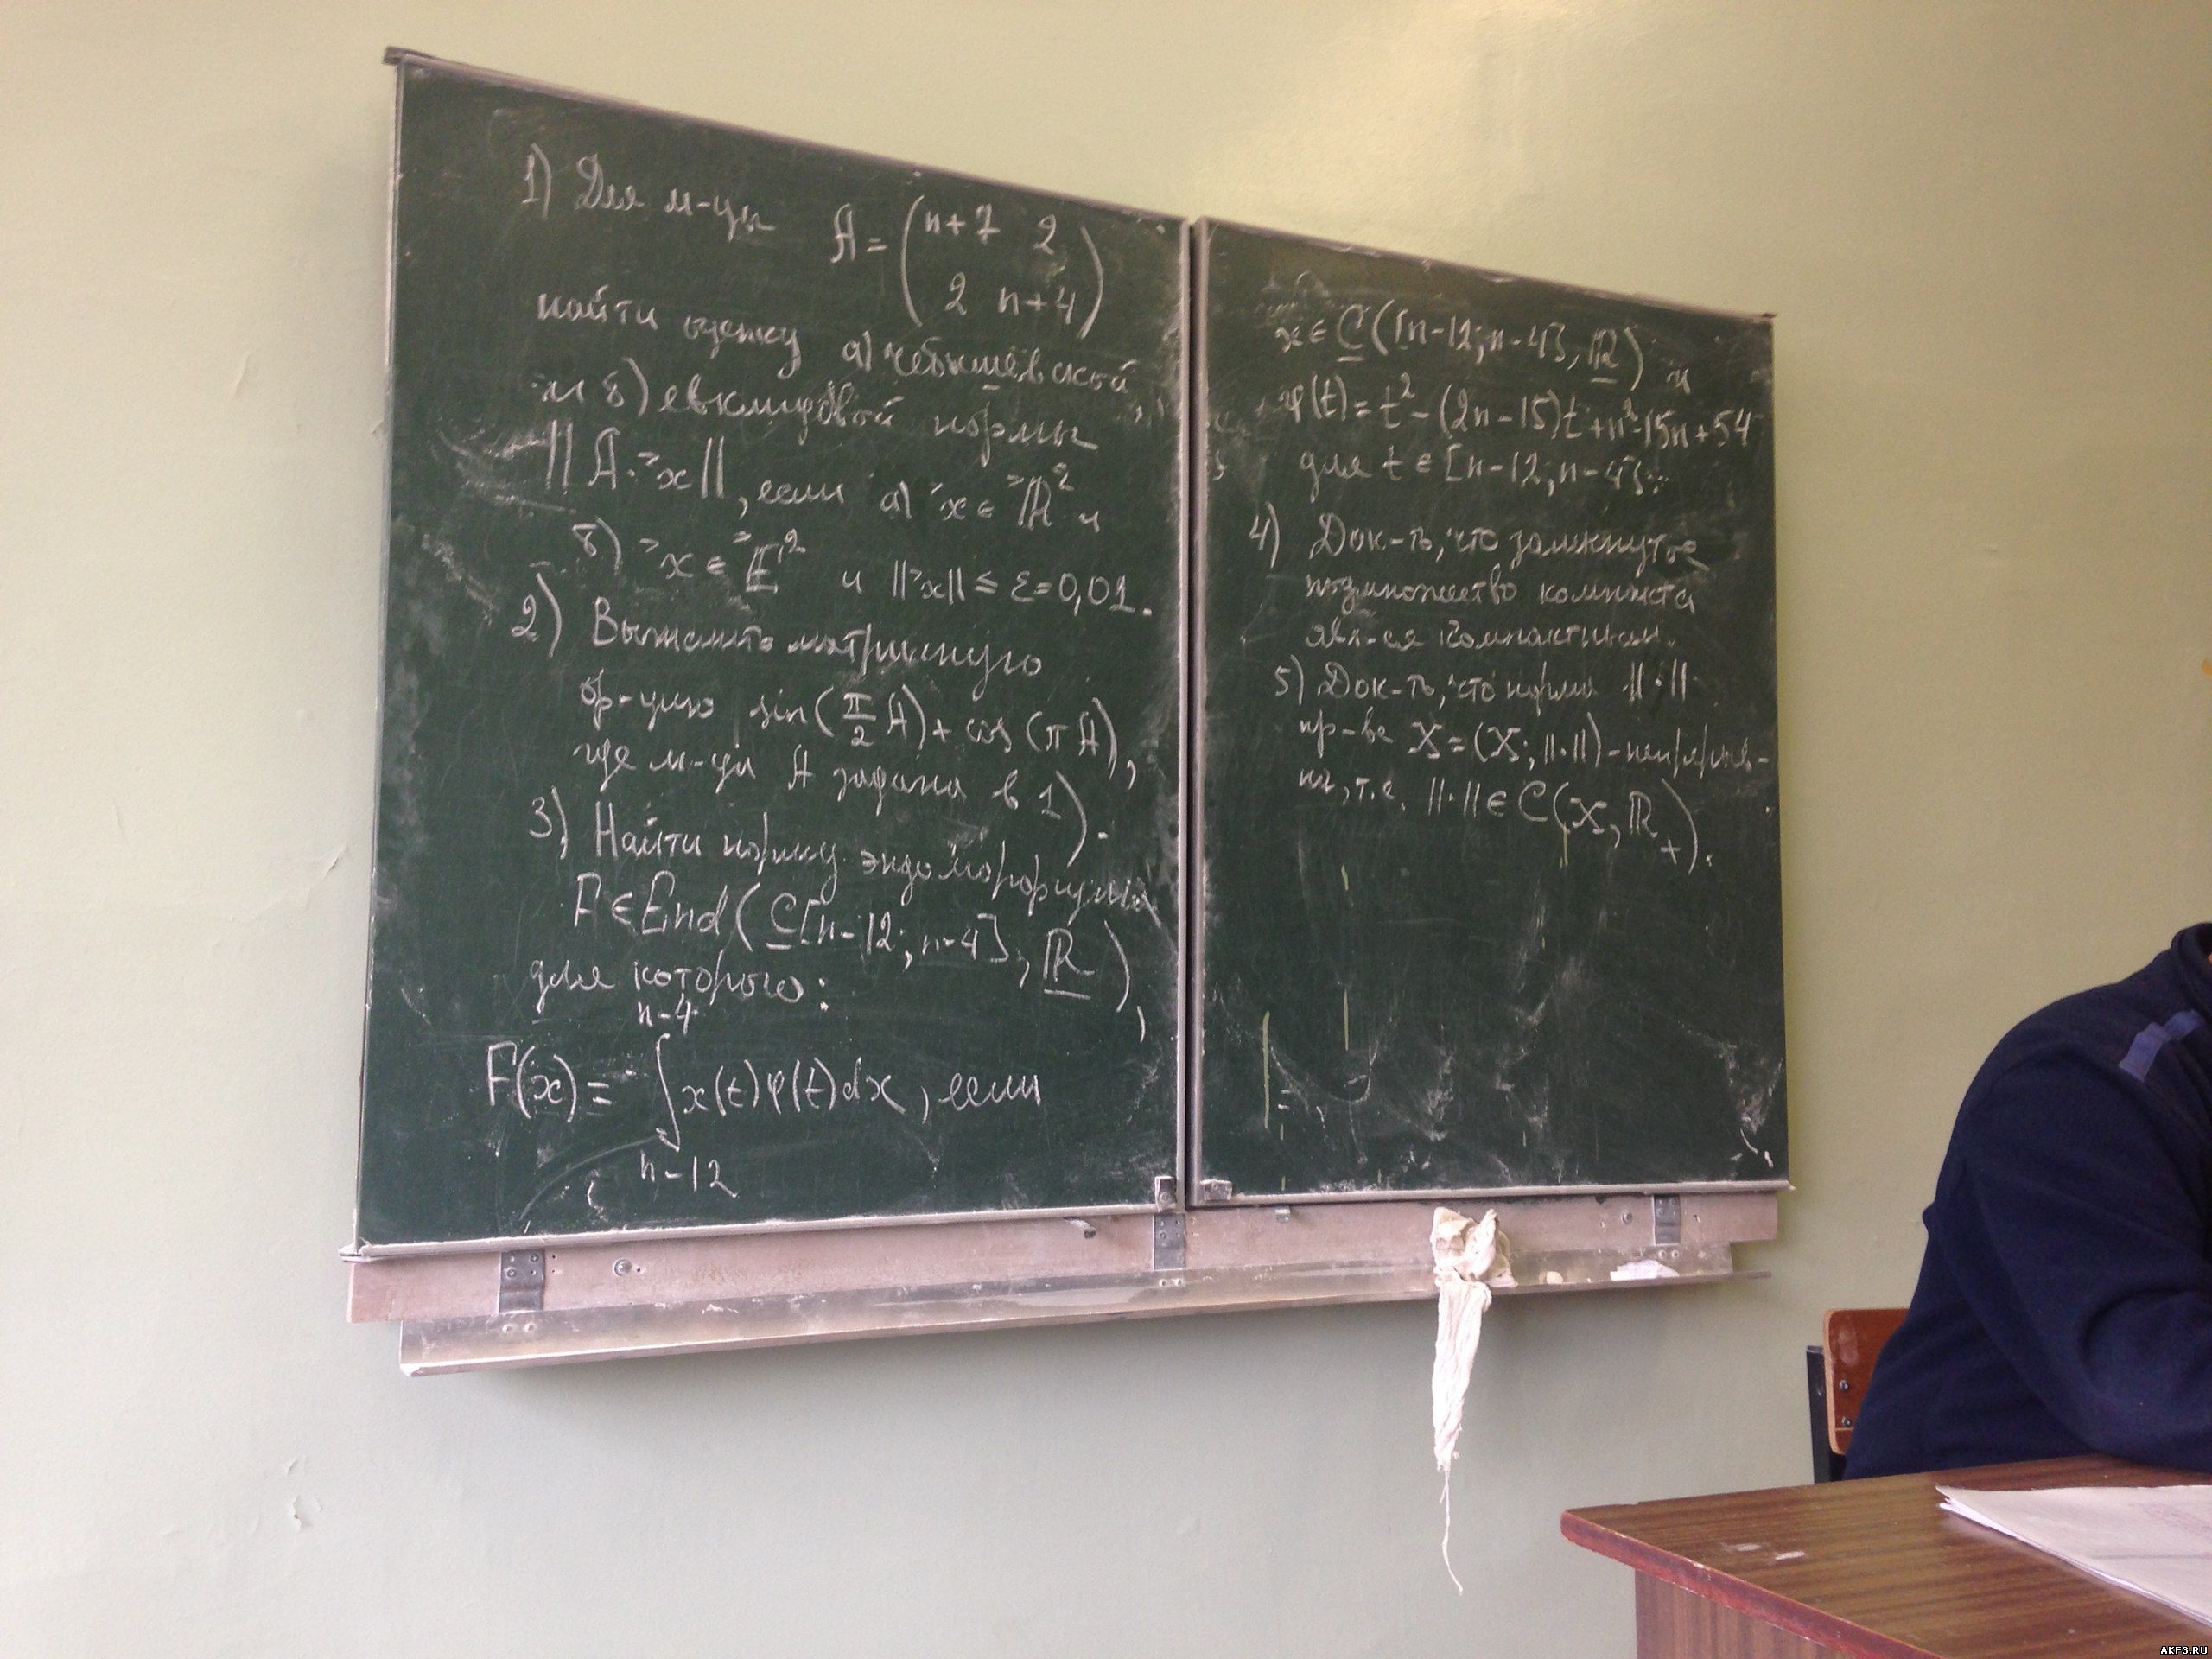 1) Для м-цы A = (n+7 2
2 n+4)
найти оценку а) чебышёвской
и б) евклидовой нормы
||A·⃗x||, если а) ⃗x ∈ ⃗ℝ² и
б) ⃗x ∈ ⃗E² и ||⃗x|| ≤ ε=0,01.
2) Вычислить матричную
ф-цию sin(π/2 A) + cos(πA),
где м-ца A задана в 1).
3) Найти норму эндоморфизма
F ∈ End(C[n-12; n-4], ℝ),
для которого:
n-4
F(x) = ∫ x(t)φ(t)dx, если
n-12
x ∈ C([n-12; n-4], ℝ) и
φ(t) = t² - (2n-15)t + n²-15n+54
для t ∈ [n-12; n-4].
4) Док-ть, что замкнутое
подмножество компакта
явл-ся компактным.
5) Док-ть, что норма ||·||
пр-ве X = (X; ||·||) - непрерыв-
на, т.е. ||·|| ∈ C(X, ℝ₊).
AKF3.RU